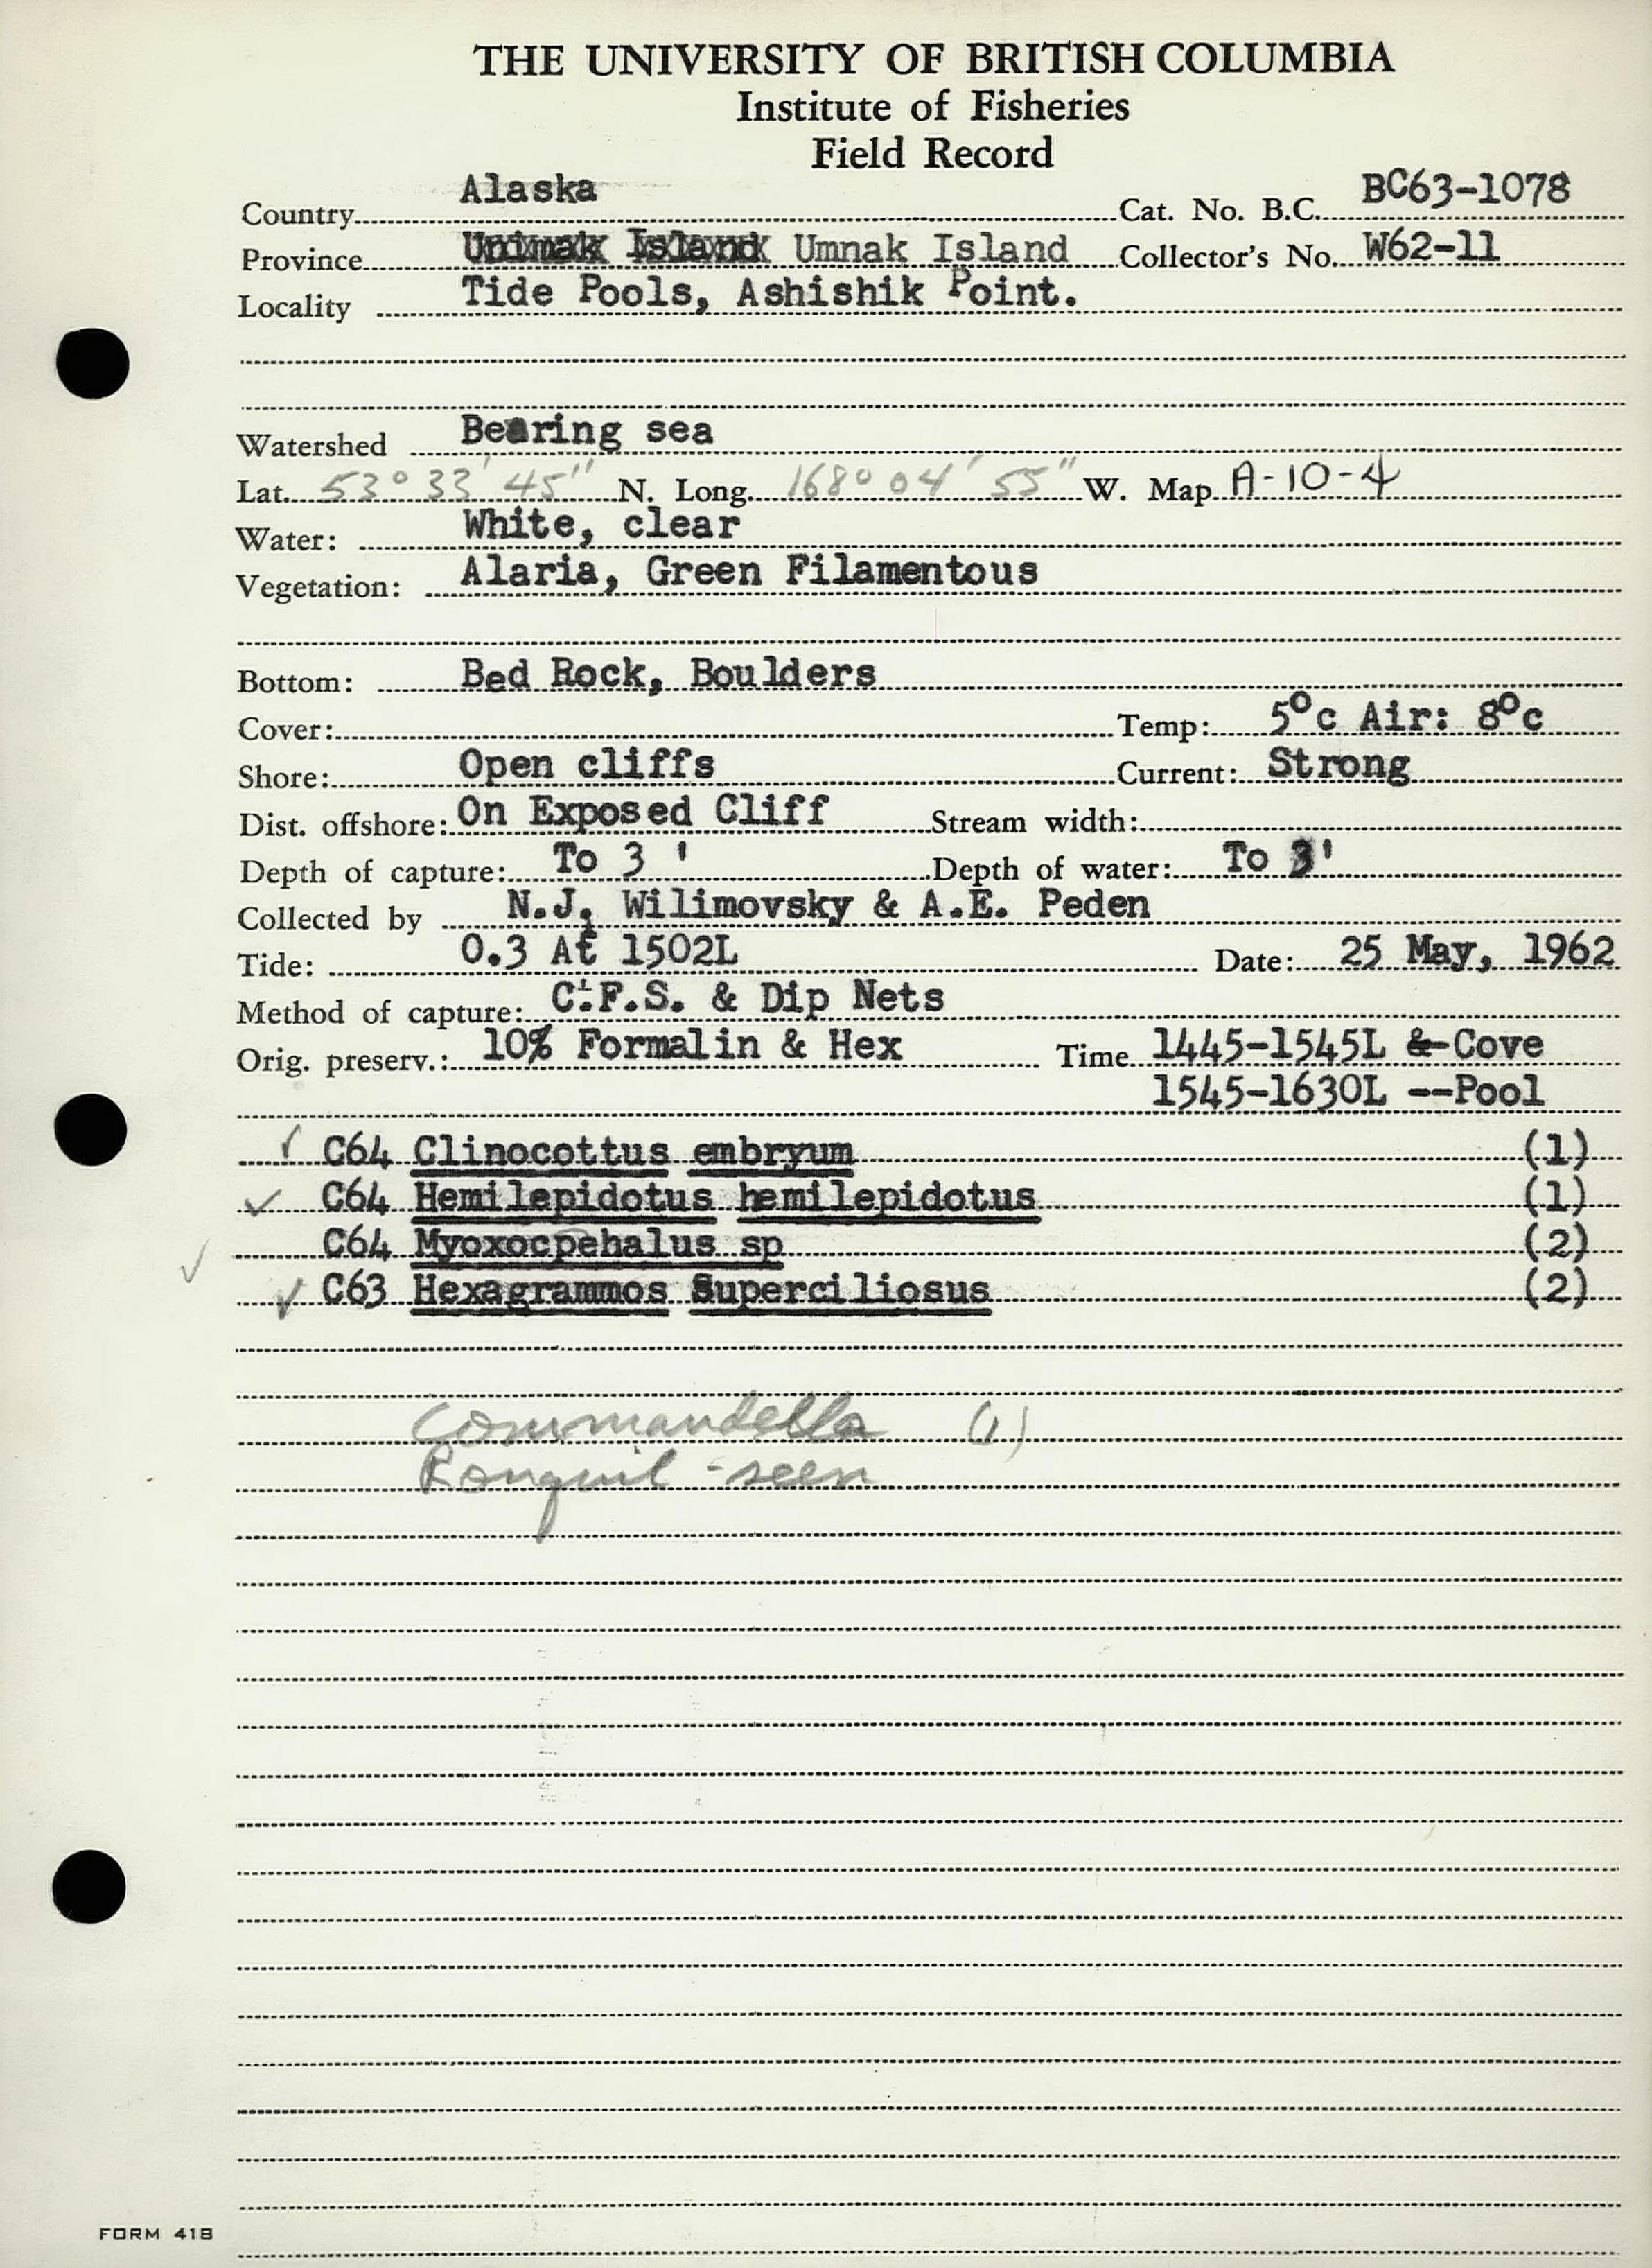 THE UNIVERSITY OF BRITISH COLUMBIA
Institute of Fisheries
Field Record
Country Alaska Cat. No. B.C. BC63-1078
Province Unimak Island Umnak Island Collector's No. W62-11
Locality Tide Pools, Ashishik Point.
Watershed Bearing sea
Lat. 53° 33' 45" N. Long. 168° 04' 55" W. Map A-10-4
Water: White, clear
Vegetation: Alaria, Green Filamentous
Bottom: Bed Rock, Boulders
Cover: Temp: 5°c Air: 8°c
Shore: Open cliffs Current: Strong
Dist. offshore: On Exposed Cliff Stream width:
Depth of capture: To 3 ' Depth of water: To 3'
Collected by N.J. Wilimovsky & A.E. Peden
Tide: 0.3 At 1502L Date: 25 May, 1962
Method of capture: C.F.S. & Dip Nets
Orig. preserv.: 10% Formalin & Hex Time 1445-1545L & Cove
1545-1630L --Pool
✓ C64 Clinocottus embryum (1)
✓ C64 Hemilepidotus hemilepidotus (1)
✓ C64 Myoxocpehalus sp (2)
✓ C63 Hexagrammos Superciliosus (2)
Commandella (1)
Ronquil - seen
FORM 41B